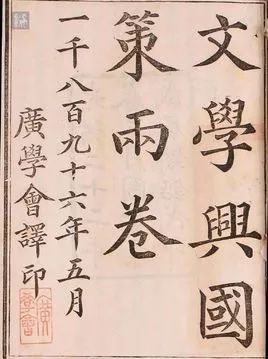 文學興國
策兩卷
一千八百九十六年五月
廣學會譯印